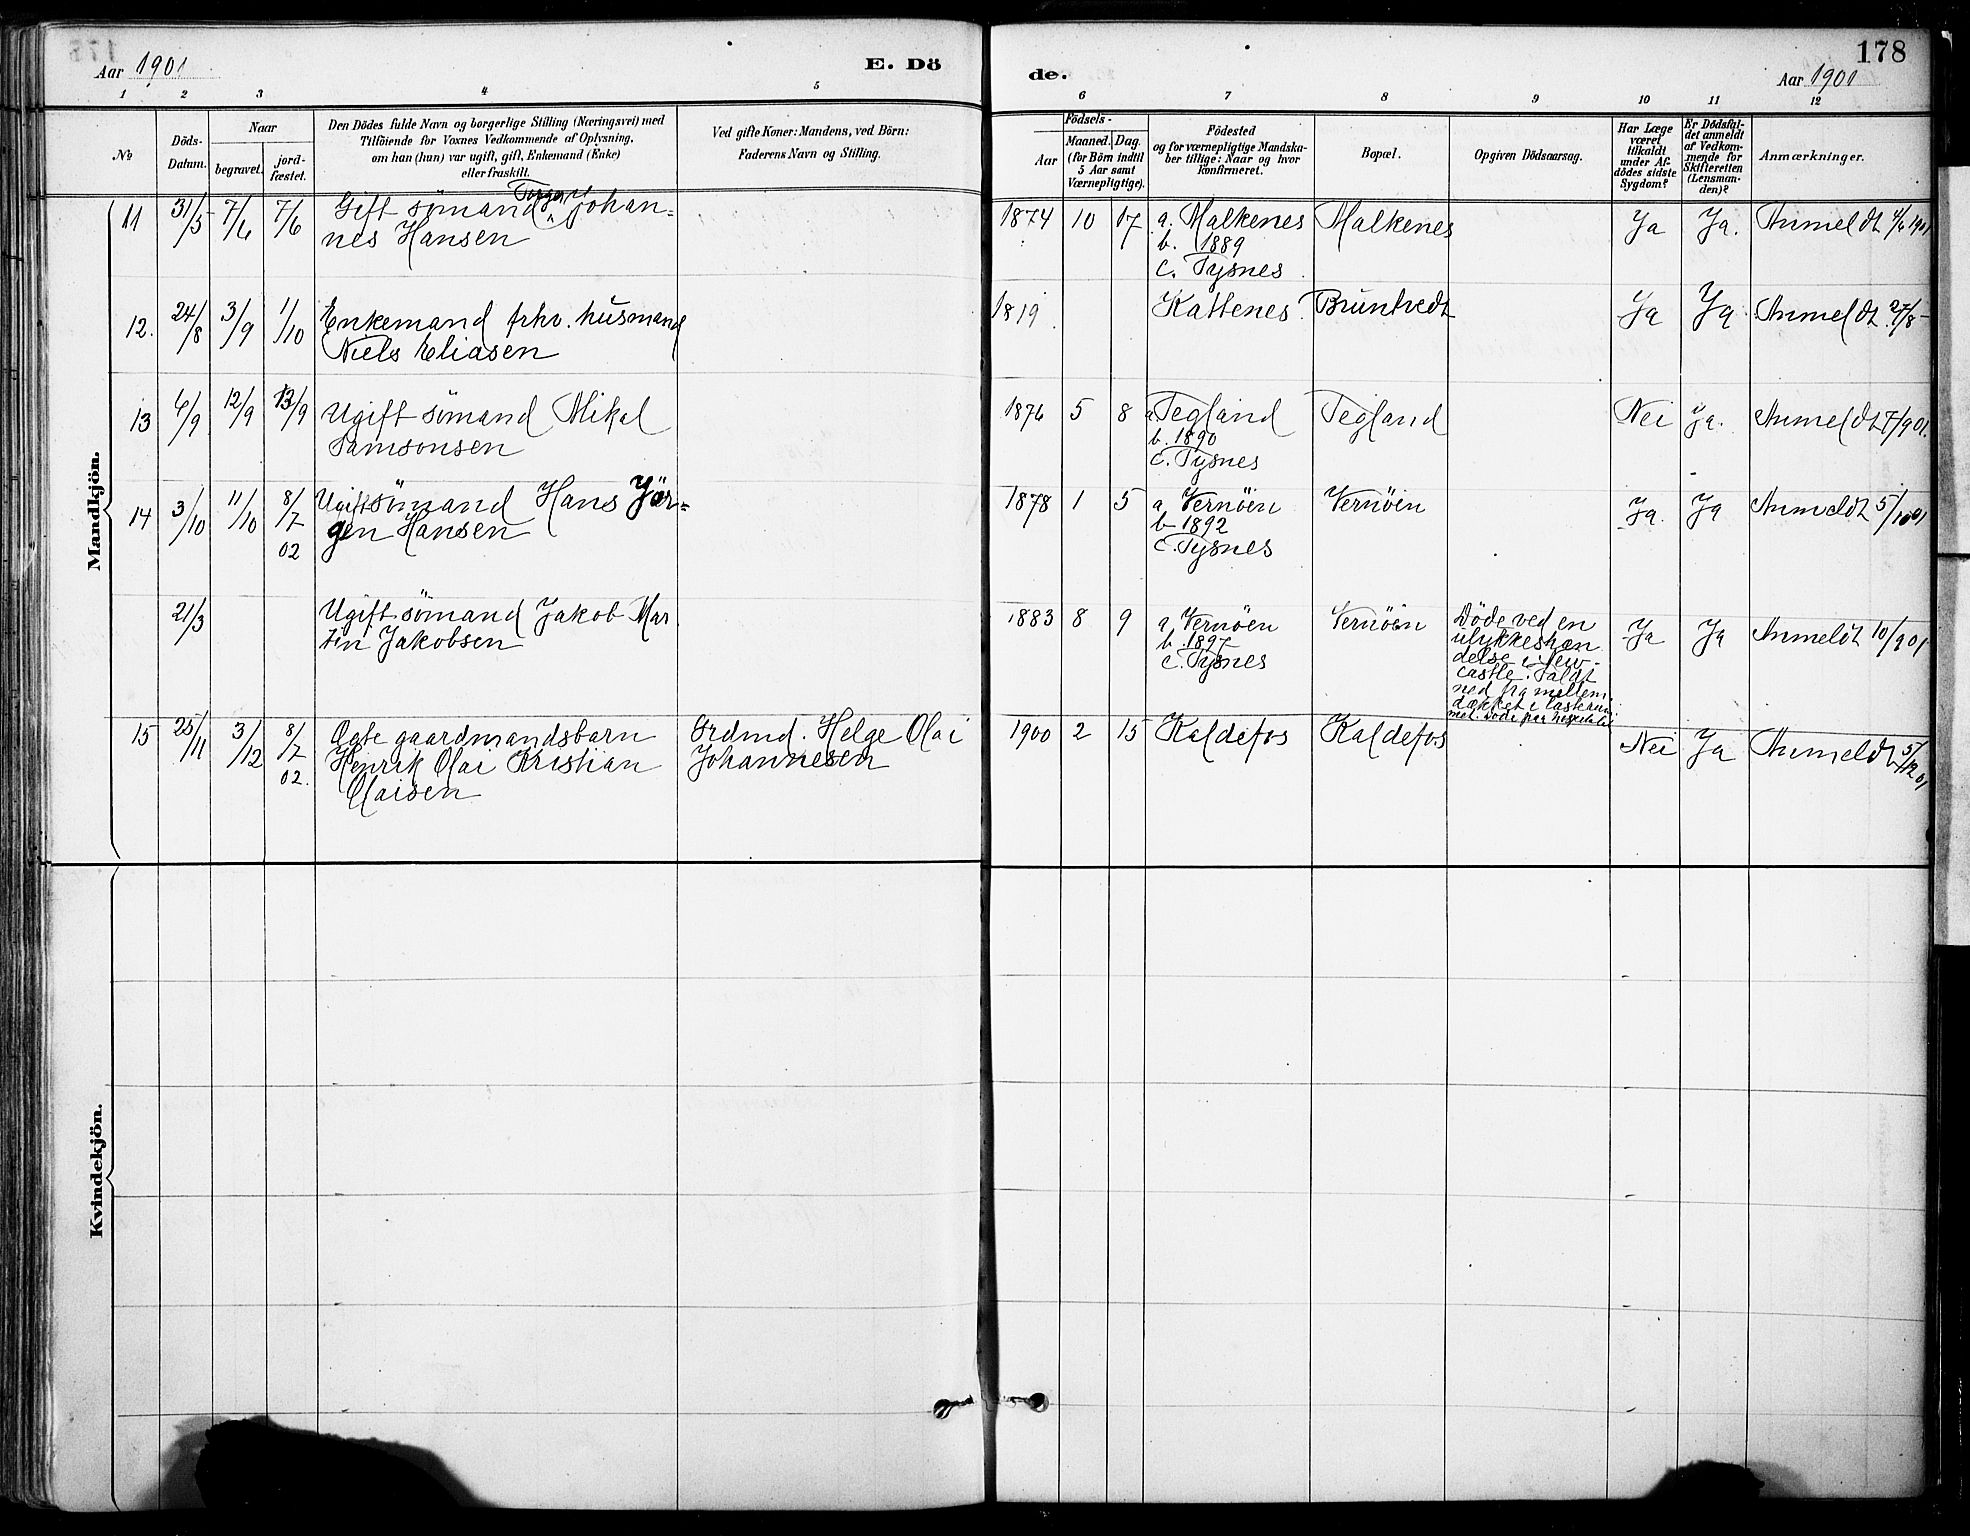 178
Aar 1901
E. Dö
de.
Aar 1901
1 2 3 4 5 6 7 8 9 10 11 12
No
Döds-
Datum.
Naar
begravet.
jord-
fæstet.
Den Dödes fulde Navn og borgerlige Stilling (Næringsvei) med
Tilföiende for Voxnes Vedkommende af Oplysning,
om han (hun) var ugift, gift, Enkemand (Enke)
eller fraskilt.
Ved gifte Koner: Mandens, ved Börn:
Faderens Navn og Stilling.
Födsels-
Aar
Maaned.
Dag.
(for Börn indtil
5 Aar samt
Værnepligtige).
Födested
og for værnepligtige Mandska-
ber tillige: Naar og hvor
konfirmeret.
Bopæl.
Opgiven Dödsaarsag.
Har Læge
været
tilkaldt
under Af-
dödes sidste
Sygdom?
Er Dödsfal-
det anmeldt
af Vedkom-
mende for
Skifteretten
(Lensman-
den)?
Anmærkninger.
Mandkjön.
11 31/5 7/6 7/6 Gift sömand Johan-
nes Hansen
1874 10 17 a. Malkenes Malkenes Ja Ja. Anmeldt 1/6 1901
b. 1889
c. Tysnes
12. 24/8 3/9 1/10 Enkemand fhv. husmand
Niels Eliasen
1819 Kattenes Bruntvedt Ja Ja Anmeldt 27/8
13 6/9 12/9 13/9 Ugift sömand Mikal
Samsonsen
1876 5 8 a Tegland Tegland Nei Ja. Anmeldt 7/9 01.
b. 1890
c. Tysnes
14 3/10 11/10 8/7 02 Ugift sömand Hans Jör-
gen Hansen
1878 1 5 a Vernöen Vernöen Ja. Ja Anmeldt 5/10 01
b 1892
c. Tysnes
21/3 Ugift sömand Jakob Mar
tin Jakobsen
1883 8 9 a Vernöen Vernöen Ja Ja Anmeldt 10/9 01
b. 1897
c. Tysnes
Döde ved en
ulykkeshæn
delse i New-
castle. Faldt
ned fra mellem
dækket i lasterum
met. Döde paa hospitalet
15 25/11 3/12 8/7 02. Ægte gaardmandsbarn
Henrik Olai Kristian
Olaisen
Grdmd. Helge Olai
Johannesen
1900 2 15 Kaldefos Kaldefos Nei Ja Anmeldt 5/12 01
Kvindekjön.